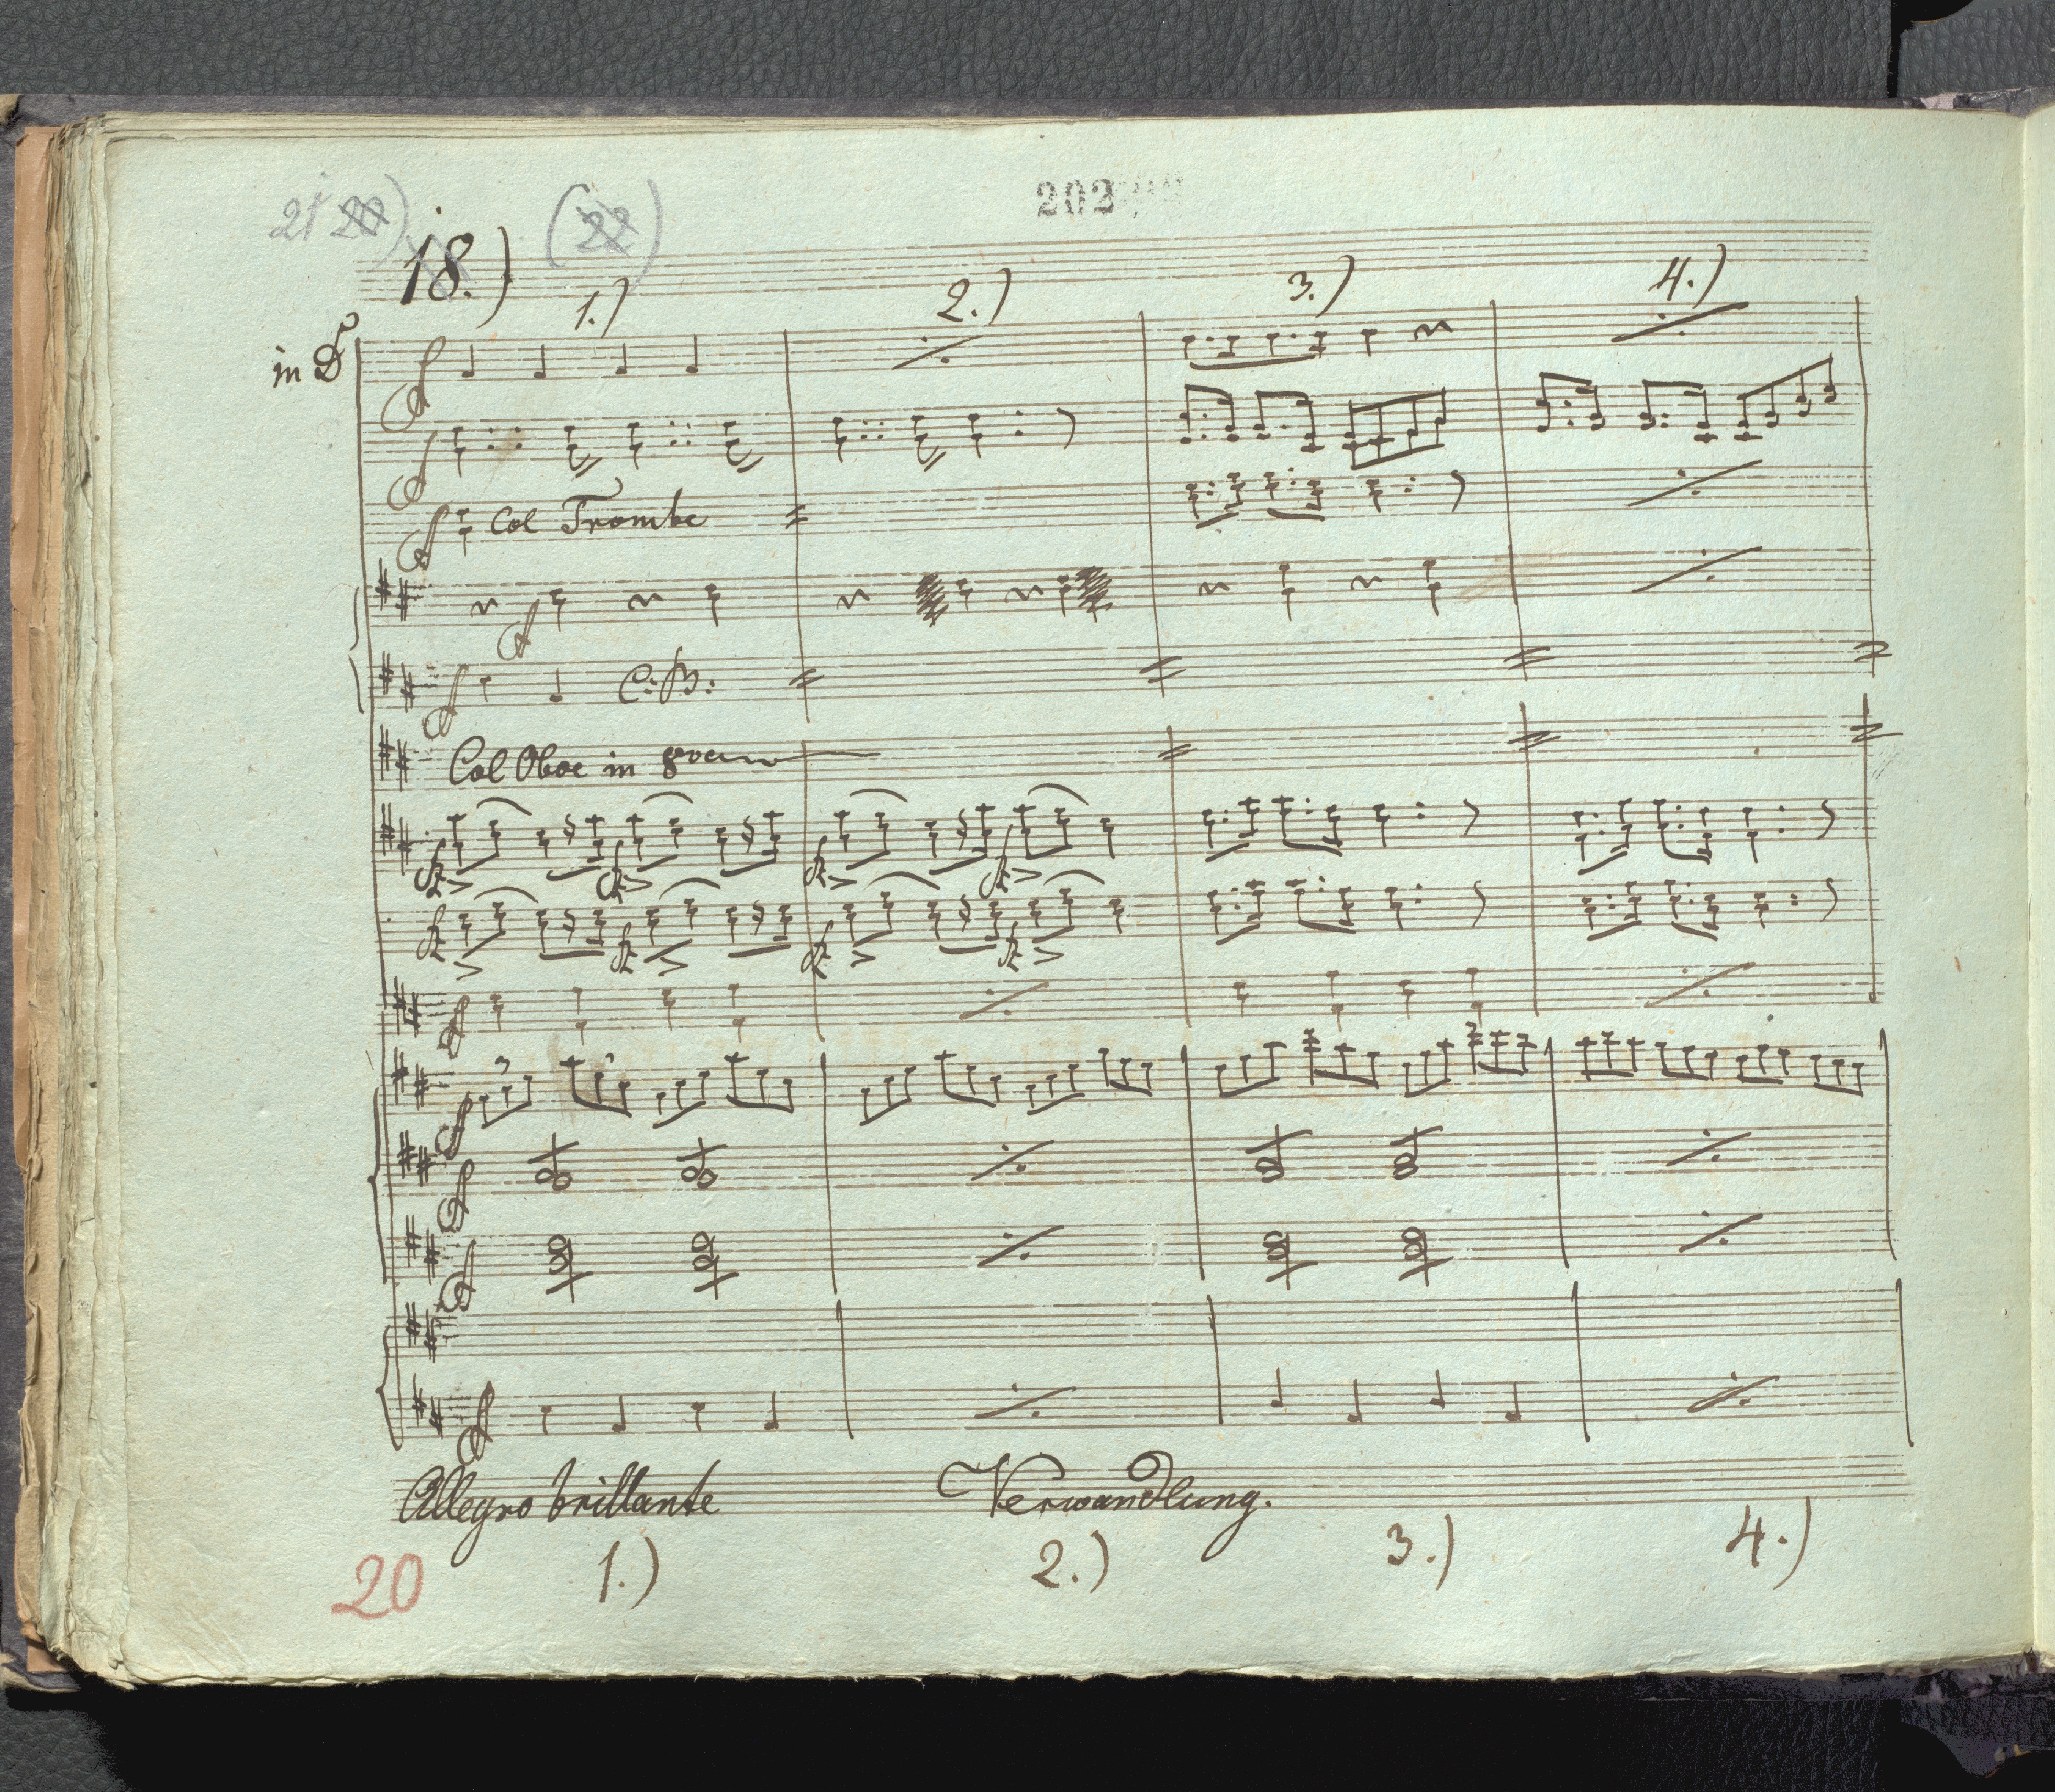 202
21 22) (22)
18.)
1.) 2.) 3.) 4.)
in D
Col Trombe
C: B:
Col Oboe in 8va
3
Allegro brillante Verwandlung.
1.) 2.) 3.) 4.)
20